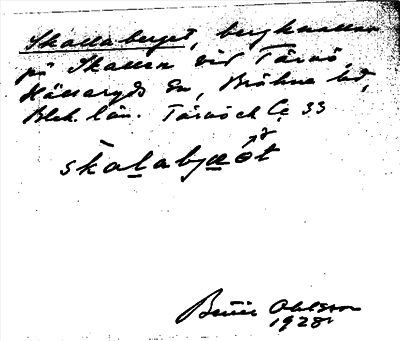 Skallaberget, bergknallar
på Skallen vid Tärnö,
Hällaryds sn, Bräkne hd,
Blek. län. Tärnö ek Cc 33
skalabjæt
Bertil Ohlsson
1928